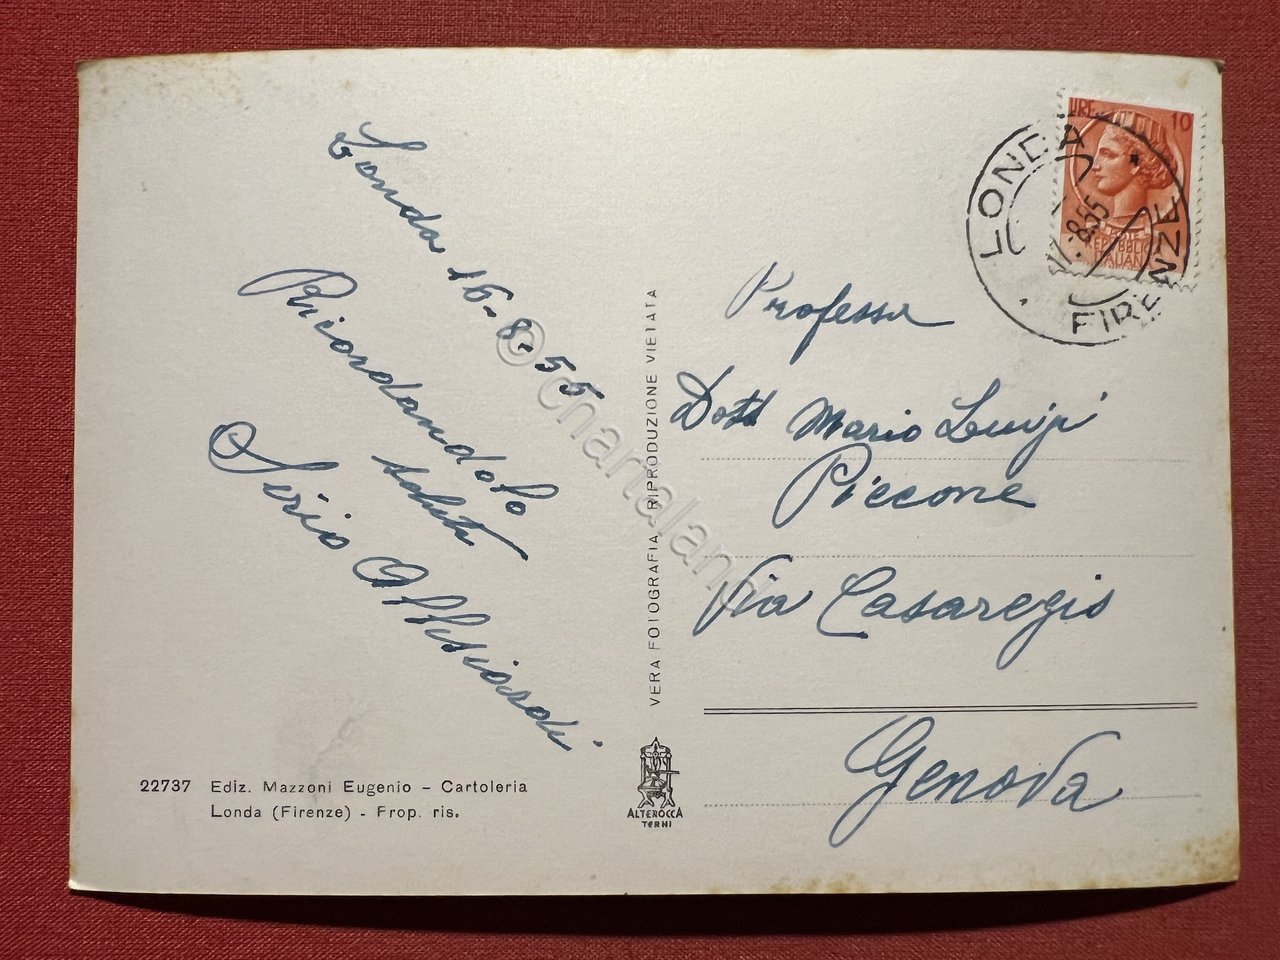 Londa 16-8-55
Ricordandola
saluta
LIRE 10
POSTE
REPUBBLICA
ITALIANA
LONDA
FIRENZE
17.8.55
Dott Mario Luigi
Piccone
Via Casaregis
Genova
VERA FOTOGRAFIA - RIPRODUZIONE VIETATA
© chartaland
22737 Ediz. Mazzoni Eugenio – Cartoleria
Londa (Firenze) - Prop. ris.
ALTEROCCA
TERNI